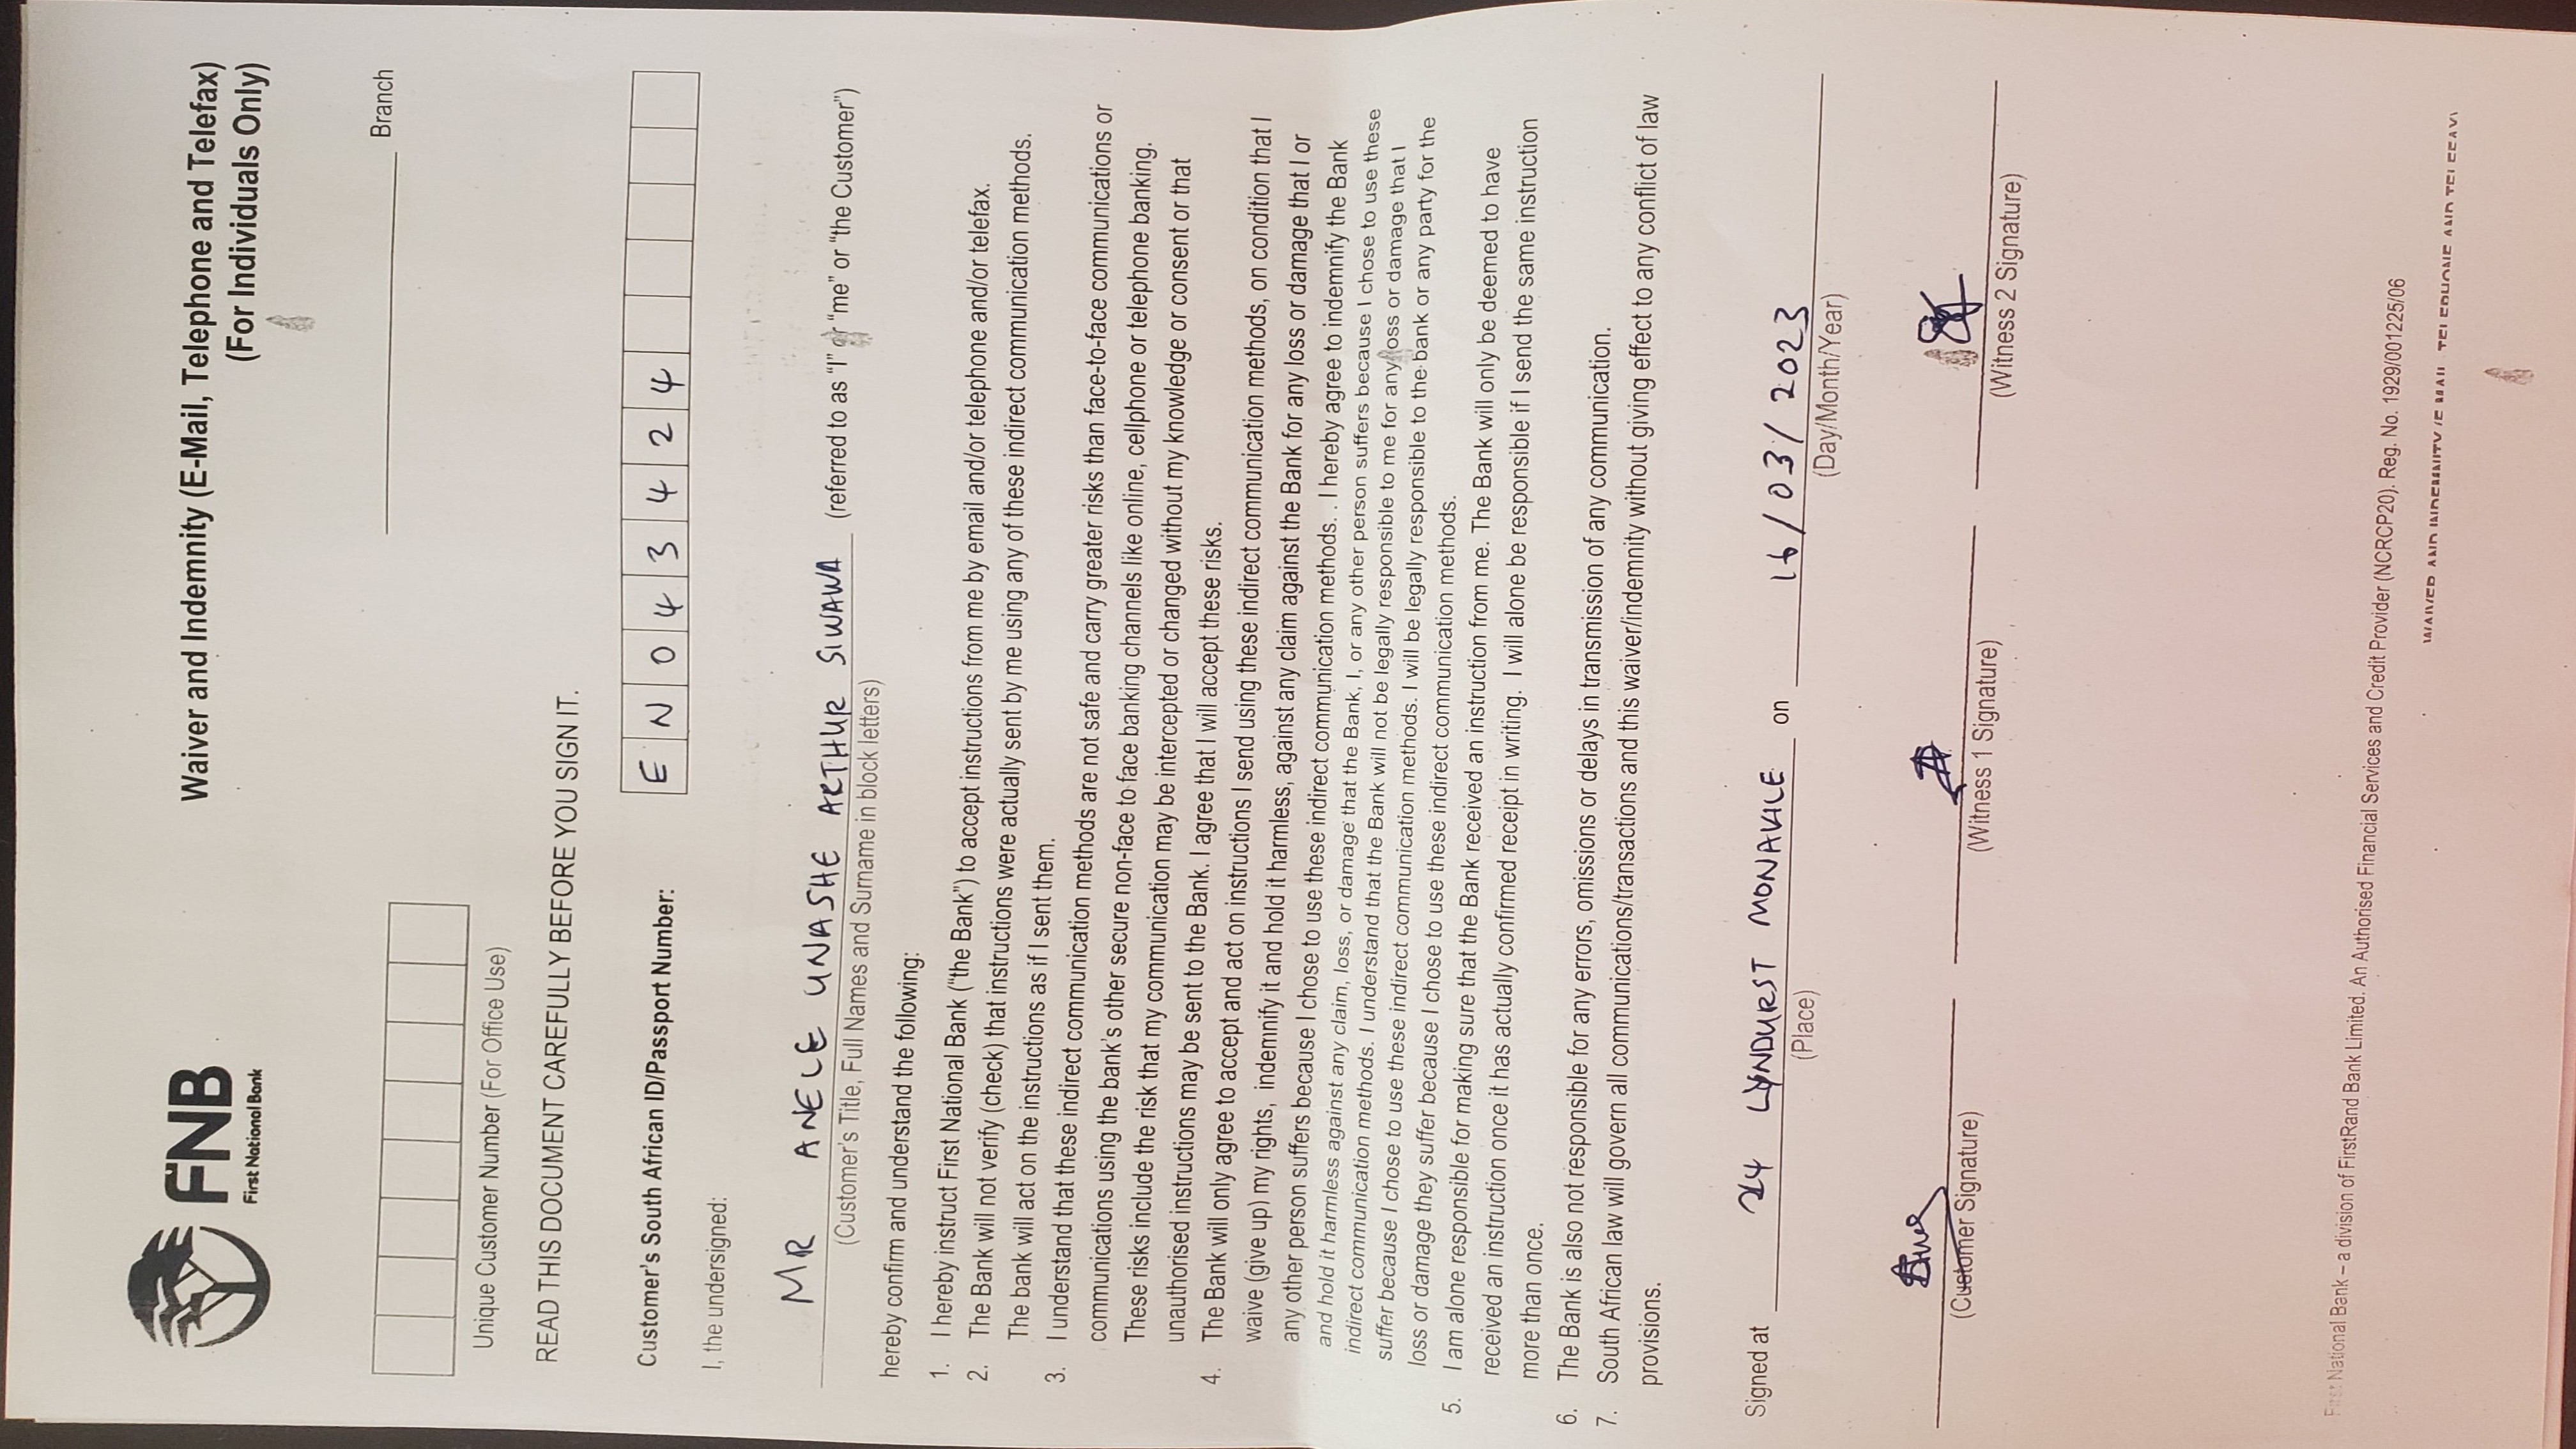 FNB
First National Bank
Waiver and Indemnity (E-Mail, Telephone and Telefax)
(For Individuals Only)
Branch
Unique Customer Number (For Office Use)
READ THIS DOCUMENT CAREFULLY BEFORE YOU SIGN IT.
Customer's South African ID/Passport Number: E N 0 4 3 4 2 4
I, the undersigned:
MR ANELE UNASHE ARTHUR SIWAWA (referred to as “I” or “me” or “the Customer”)
(Customer's Title, Full Names and Surname in block letters)
hereby confirm and understand the following:
1. I hereby instruct First National Bank (“the Bank”) to accept instructions from me by email and/or telephone and/or telefax.
2. The Bank will not verify (check) that instructions were actually sent by me using any of these indirect communication methods.
The bank will act on the instructions as if I sent them.
3. I understand that these indirect communication methods are not safe and carry greater risks than face-to-face communications or
communications using the bank's other secure non-face to face banking channels like online, cellphone or telephone banking.
These risks include the risk that my communication may be intercepted or changed without my knowledge or consent or that
unauthorised instructions may be sent to the Bank. I agree that I will accept these risks.
4. The Bank will only agree to accept and act on instructions I send using these indirect communication methods, on condition that I
waive (give up) my rights, indemnify it and hold it harmless, against any claim against the Bank for any loss or damage that I or
any other person suffers because I chose to use these indirect communication methods. . I hereby agree to indemnify the Bank
and hold it harmless against any claim, loss, or damage that the Bank, I, or any other person suffers because I chose to use these
indirect communication methods. I understand that the Bank will not be legally responsible to me for any loss or damage that I
suffer because I chose to use these indirect communication methods. I will be legally responsible to the bank or any party for the
loss or damage they suffer because I chose to use these indirect communication methods.
5. I am alone responsible for making sure that the Bank received an instruction from me. The Bank will only be deemed to have
received an instruction once it has actually confirmed receipt in writing. I will alone be responsible if I send the same instruction
more than once.
6. The Bank is also not responsible for any errors, omissions or delays in transmission of any communication.
7. South African law will govern all communications/transactions and this waiver/indemnity without giving effect to any conflict of law
provisions.
Signed at LYNDURST MONAVILE on 16/03/2023
(Place) (Day/Month/Year)
(Customer Signature) (Witness 1 Signature) (Witness 2 Signature)
First National Bank – a division of FirstRand Bank Limited. An Authorised Financial Services and Credit Provider (NCRCP20). Reg. No. 1929/001225/06
WAIVER AND INDEMNITY (E MAIL, TELEPHONE AND TELEFAX)